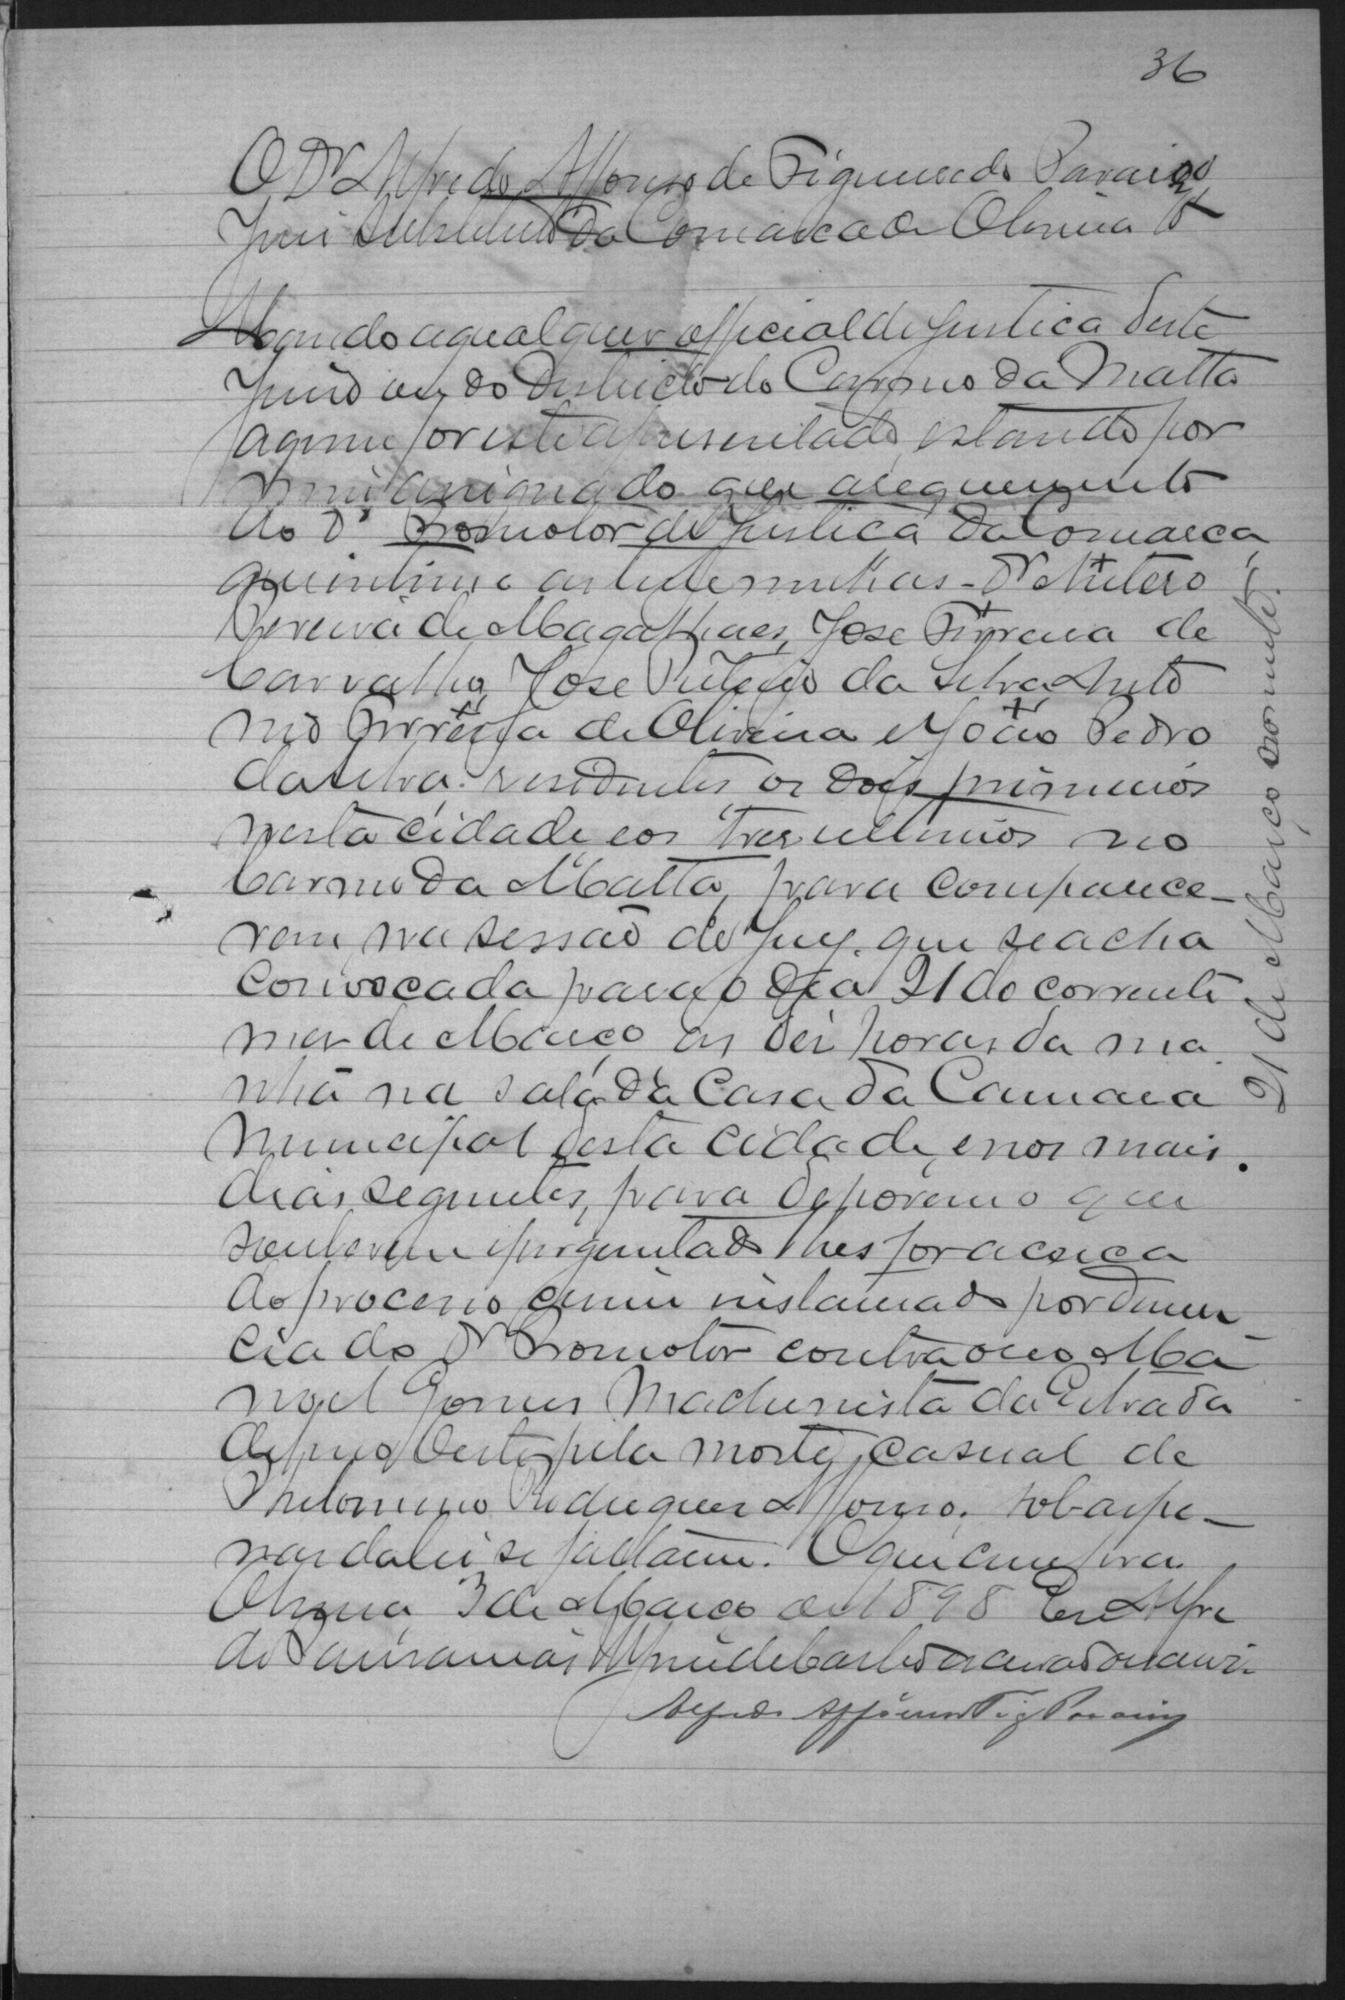 36
O Dr Alfredo Affonso de Figueiredo Paraiso
Juis Substituto da Comarca de Oliveira &
Mando a qualquer official de justiça deste
Juiso ou do Districto do Carmo da Matta
a quem for este apresentado, estando por
mim assignado que a requerimento
do Dr Promotor de Justiça da Comarca
que intime as testemunhas - Dr Antero
Pereira de Magalhaes, José Ferreira de
Carvalho, José da Silva Anto
nio Ferreira de Oliveira e João Pedro
da Silva residentes os dois primeiros
nesta cidade e os tres ultimos no
Carmo da Matta, para compance-
rem na sessão do Jury que se acha
convocada para o dia 21 do corrente
mes de Março as des horas da ma
nhã na sala da Casa da Camara
Municipal desta cidade, e nos mais
dias seguintes, para deporem o que
souberem e perguntado lhes for acerca
do processo crime instaurado por denun
cia do Dr Promotor contra o reo Ma
noel Gomes Machinista da Estrada
de ferro Oeste pela morte casual de
Philomeno Rodrigues Affonso, sob as pe-
nas da lei se faltarem. O que cumpra.
Oliveira 3 de Março de 1898 Eu Alfre
do
Alfredo Affonso Fig Paraiso
21 de Março somente.